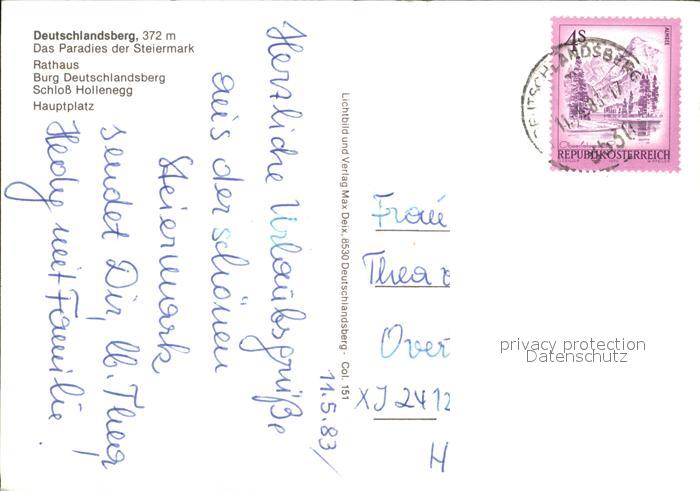 Deutschlandsberg, 372 m
Das Paradies der Steiermark
Rathaus
Burg Deutschlandsberg
Schloß Hollenegg
Hauptplatz
Herzliche Urlaubsgrüße
aus der schönen
Steiermark
sendet Dir, lb. Thea,
Hedy mit Familie.
11.5.83/
Lichtbild und Verlag Max Deix, 8530 Deutschlandsberg - Col. 151
4S
ALMSEE
REPUBLIK ÖSTERREICH
DEUTSCHLANDSBERG
8530
Frau
Thea
Over
XJ 2412
H
privacy protection
Datenschutz